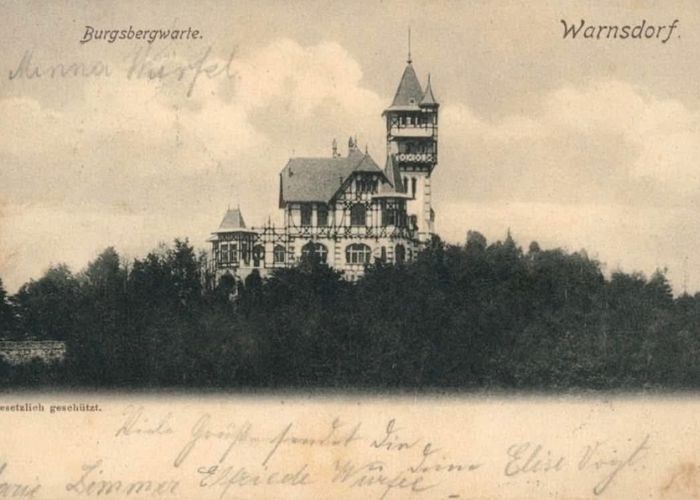 Burgsbergwarte.
Warnsdorf.
Minna Würfel
esetzlich geschützt.
Viele Grüße sendet Dir
Deine Elise Voigt.
arie Zimmer Elfriede Würfel